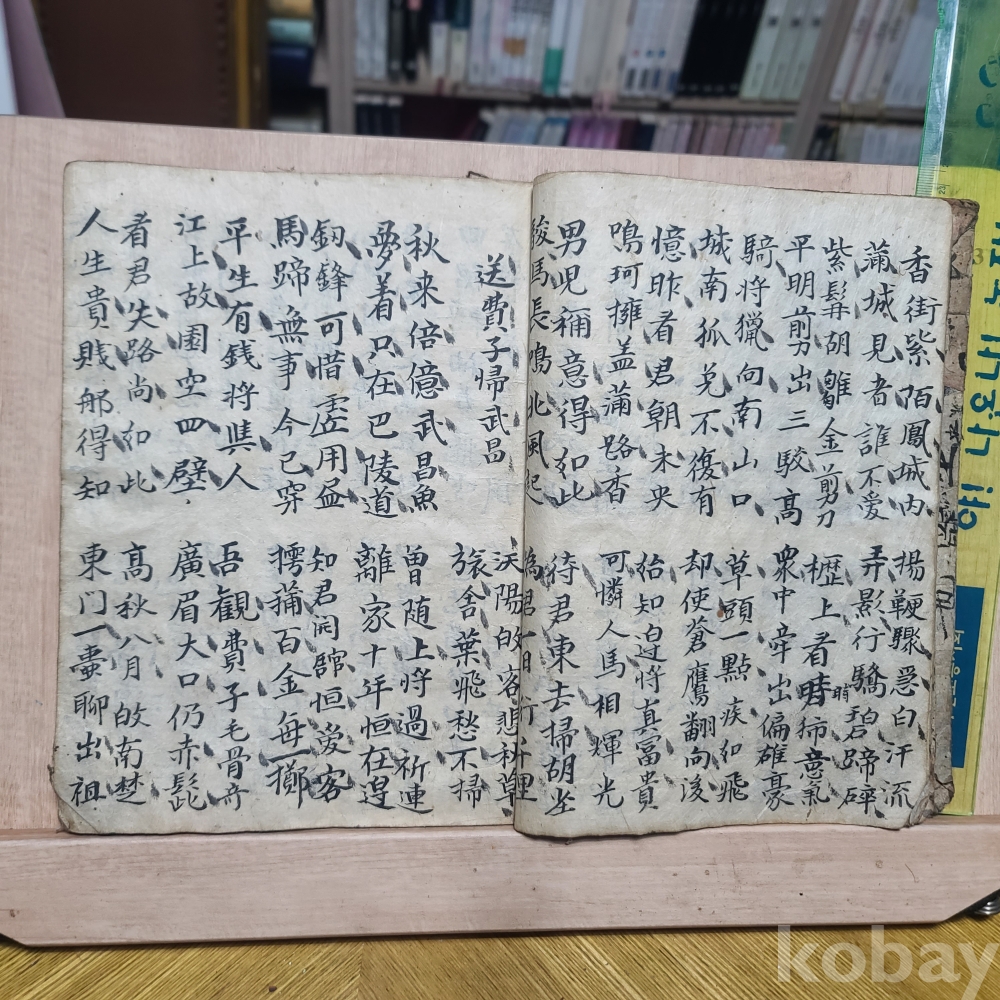 香街紫陌鳳城內 揚鞕驟急白汗流
蒲城見者誰不愛 弄影行驕碧蹄碎
紫髯胡雛金剪刀 櫪上看時 意氣
平明剪出三騣高 衆中牵出偏雄豪
騎將獵向南山口 草頭一點疾如飛
城南狐兎不復有 却使蒼鷹翻向後
憶昨看君朝未央 始知边將真富貴
鳴珂擁盖蒲路香 可憐人馬相輝光
男児稱意得如此 待君東去掃胡尘
駿馬長鳴北風起 為君一日行千里
送費子帰武昌
汉陽故客悲秋草
旅舍葉飛愁不掃
秋来倍憶武昌魚 曾随上將過祈連
夢着只在巴陵道 離家十年恒在邊
釼鋒可惜虛用盡 知君開舘恒愛客
馬蹄無事今已穿 摴蒲百金每一擲
平生有銭將與人 吾觀費子毛骨奇
江上故園空四壁 廣眉大口仍赤髭
看君失路尚如此 高秋八月故南楚
人生貴賤那得知 東门一壺聊出祖
kobay